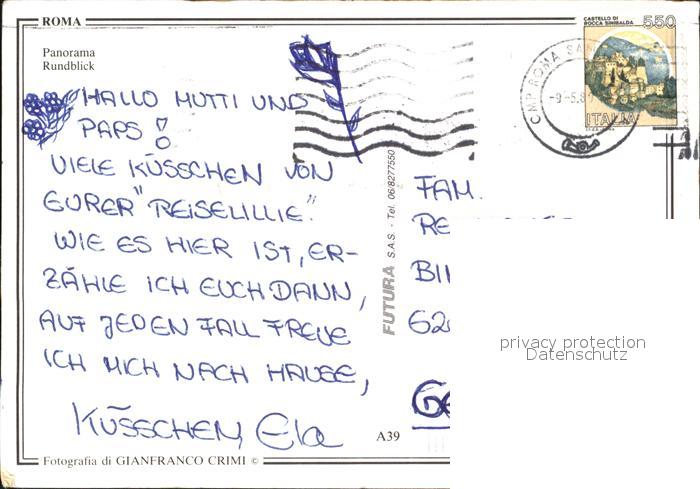 ROMA
Panorama
Rundblick
HALLO MUTTI UND
PAPS!
VIELE KÜSSCHEN VON
EURER "REISELILLIE".
WIE ES HIER IST, ER-
ZÄHLE ICH EUCH DANN,
AUF JEDEN FALL FREUE
ICH MICH NACH HAUSE,
KÜSSCHEN, Ela
A39
Fotografia di GIANFRANCO CRIMI ©
FUTURA S.A.S. - Tel. 06/8277550
CASTELLO DI
ROCCA SINIBALDA
550
ITALIA
CMP ROMA SAN
-9-5.8
FAM.
RE
BI
62
GE
privacy protection
Datenschutz